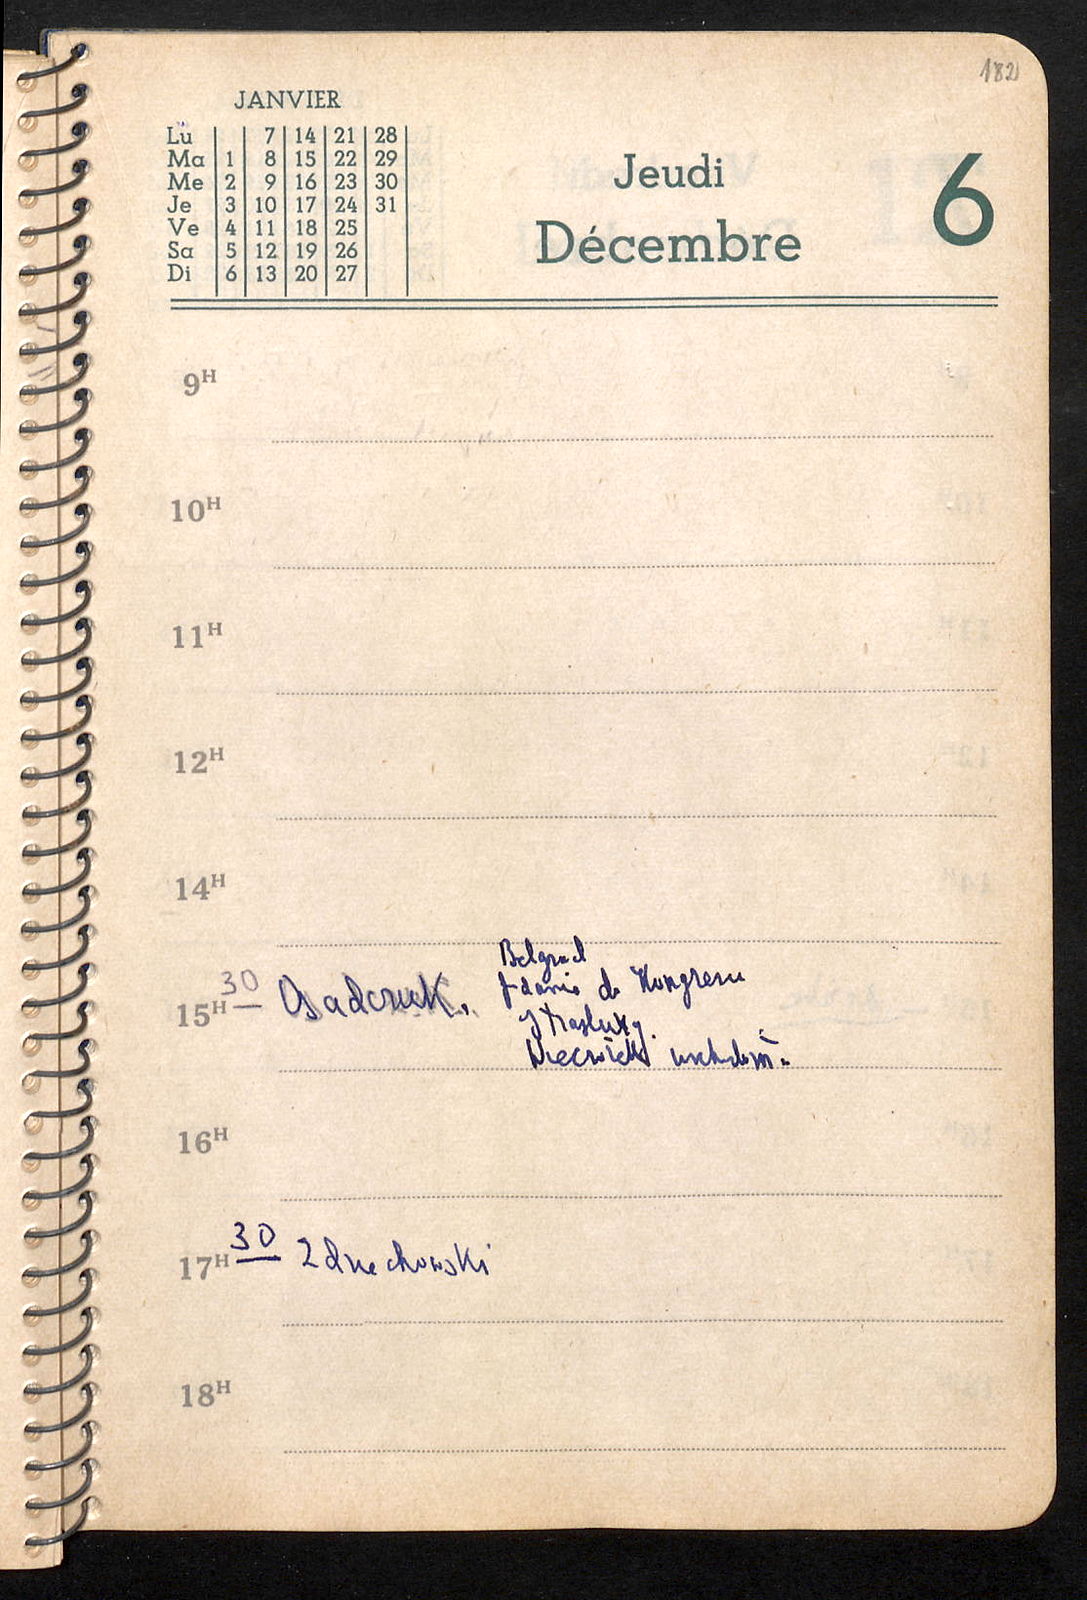 182
JANVIER
Lu 7 14 21 28
Ma 1 8 15 22 29
Me 2 9 16 23 30
Je 3 10 17 24 31
Ve 4 11 18 25
Sa 5 12 19 26
Di 6 13 20 27
Jeudi
Décembre
6
9H
10H
11H
12H
14H
Belgrad
do Kongresu
15H 30 Osadczuk.
16H
17H 30 Zdziechowski
18H